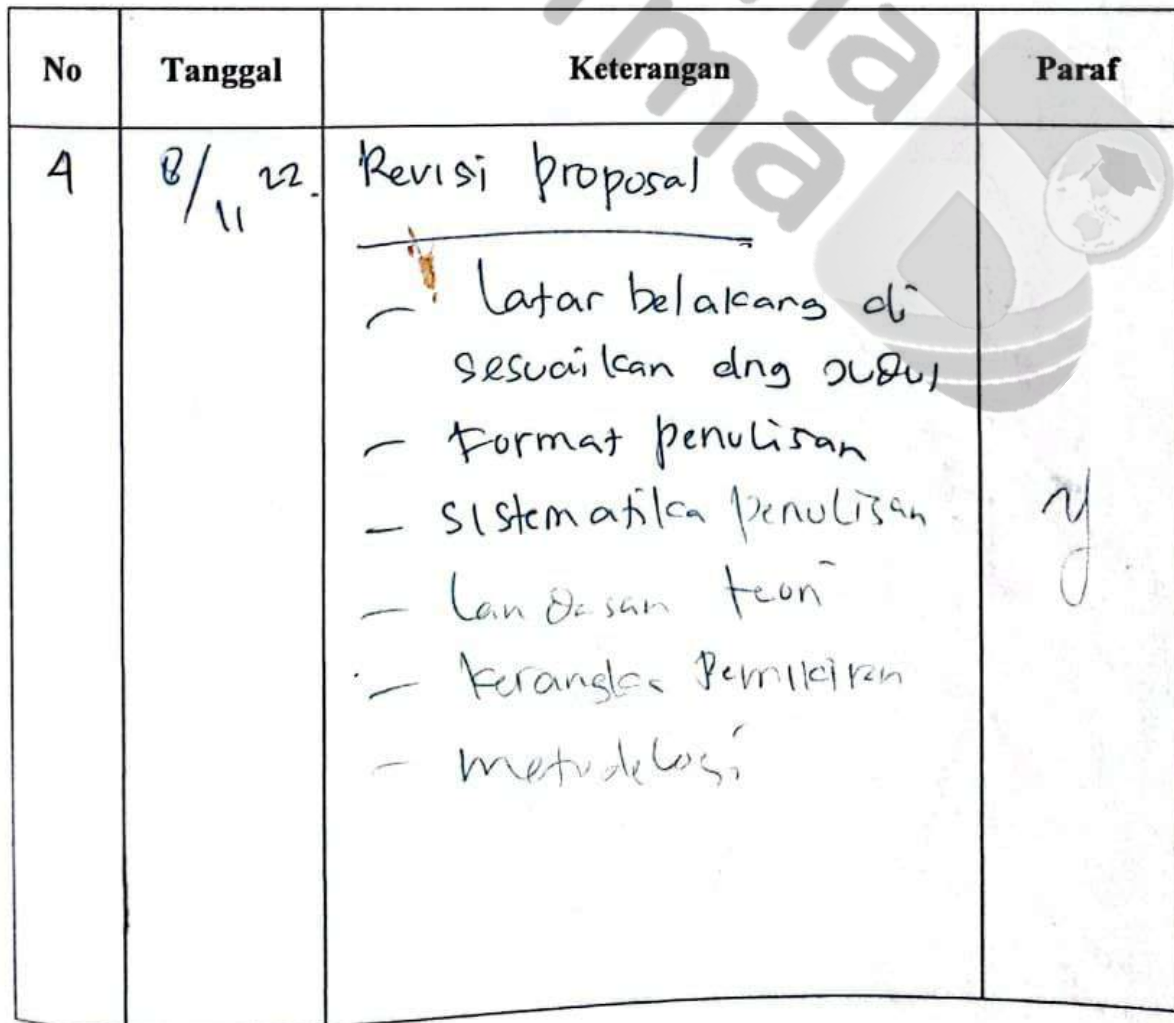 No Tanggal Keterangan Paraf
4 8/11 22. Revisi proposal
- Latar belakang di
sesuaikan dng judul
- Format penulisan
- Sistematika penulisan
- Landasan teori
- Kerangka Pemikiran
- metodelogi